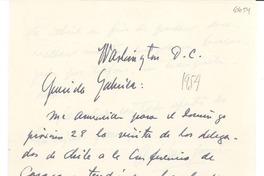 6654
Washington D.C.
Querida Gabriela:
1954
Me anuncian para el domingo
próximo 28 la visita de los delega-
dos de Chile a la Conferencia de
Caracas